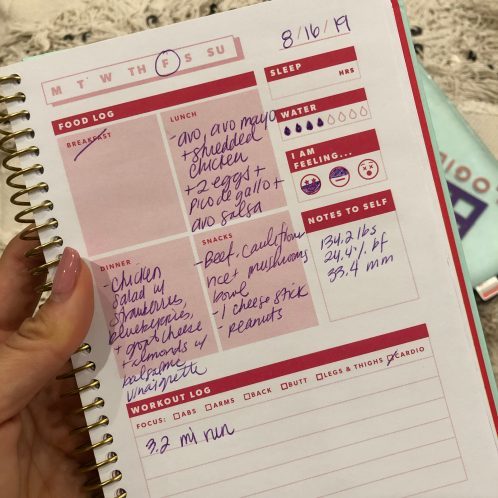 M T W TH F S SU
8/16/19
FOOD LOG
BREAKFAST
LUNCH
-avo, avo mayo
+ shredded
chicken
+ 2 eggs +
pico de gallo +
avo salsa
DINNER
-chicken
salad w/
strawberries,
blueberries,
+ goat cheese
+ almonds w/
balsamic
vinaigrette
SNACKS
-Beef, cauliflower
rice + mushrooms
bowl
-1 cheese stick
-peanuts
SLEEP
HRS
WATER
I AM
FEELING...
NOTES TO SELF
134.2 lbs
24.4% bf
33.4 mm
WORKOUT LOG
FOCUS: ABS ARMS BACK BUTT LEGS & THIGHS CARDIO
3.2 mi run